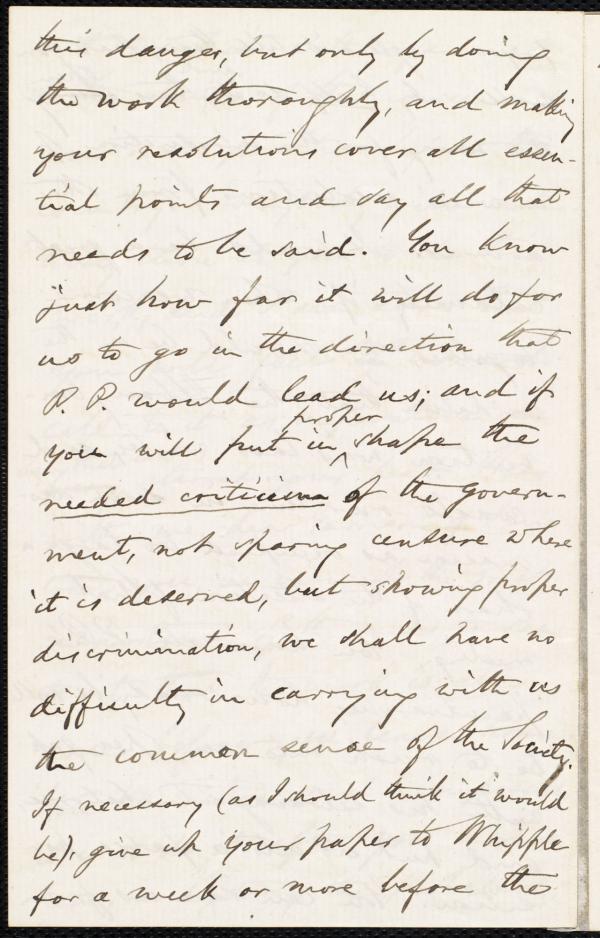 this danger, but only by doing
the work thoroughly, and making
your resolutions cover all essen-
tial points and say all that
needs to be said. You know
just how far it will do for
us to go in the direction that
P. P. would lead us; and if
proper
you will put in ^ shape the
needed criticism of the govern-
ment, not sparing censure where
it is deserved, but showing proper
discrimination, we shall have no
difficulty in carrying with us
the common sense of the Society.
If necessary (as I should think it would
be), give up your paper to Whipple
for a week or more before the